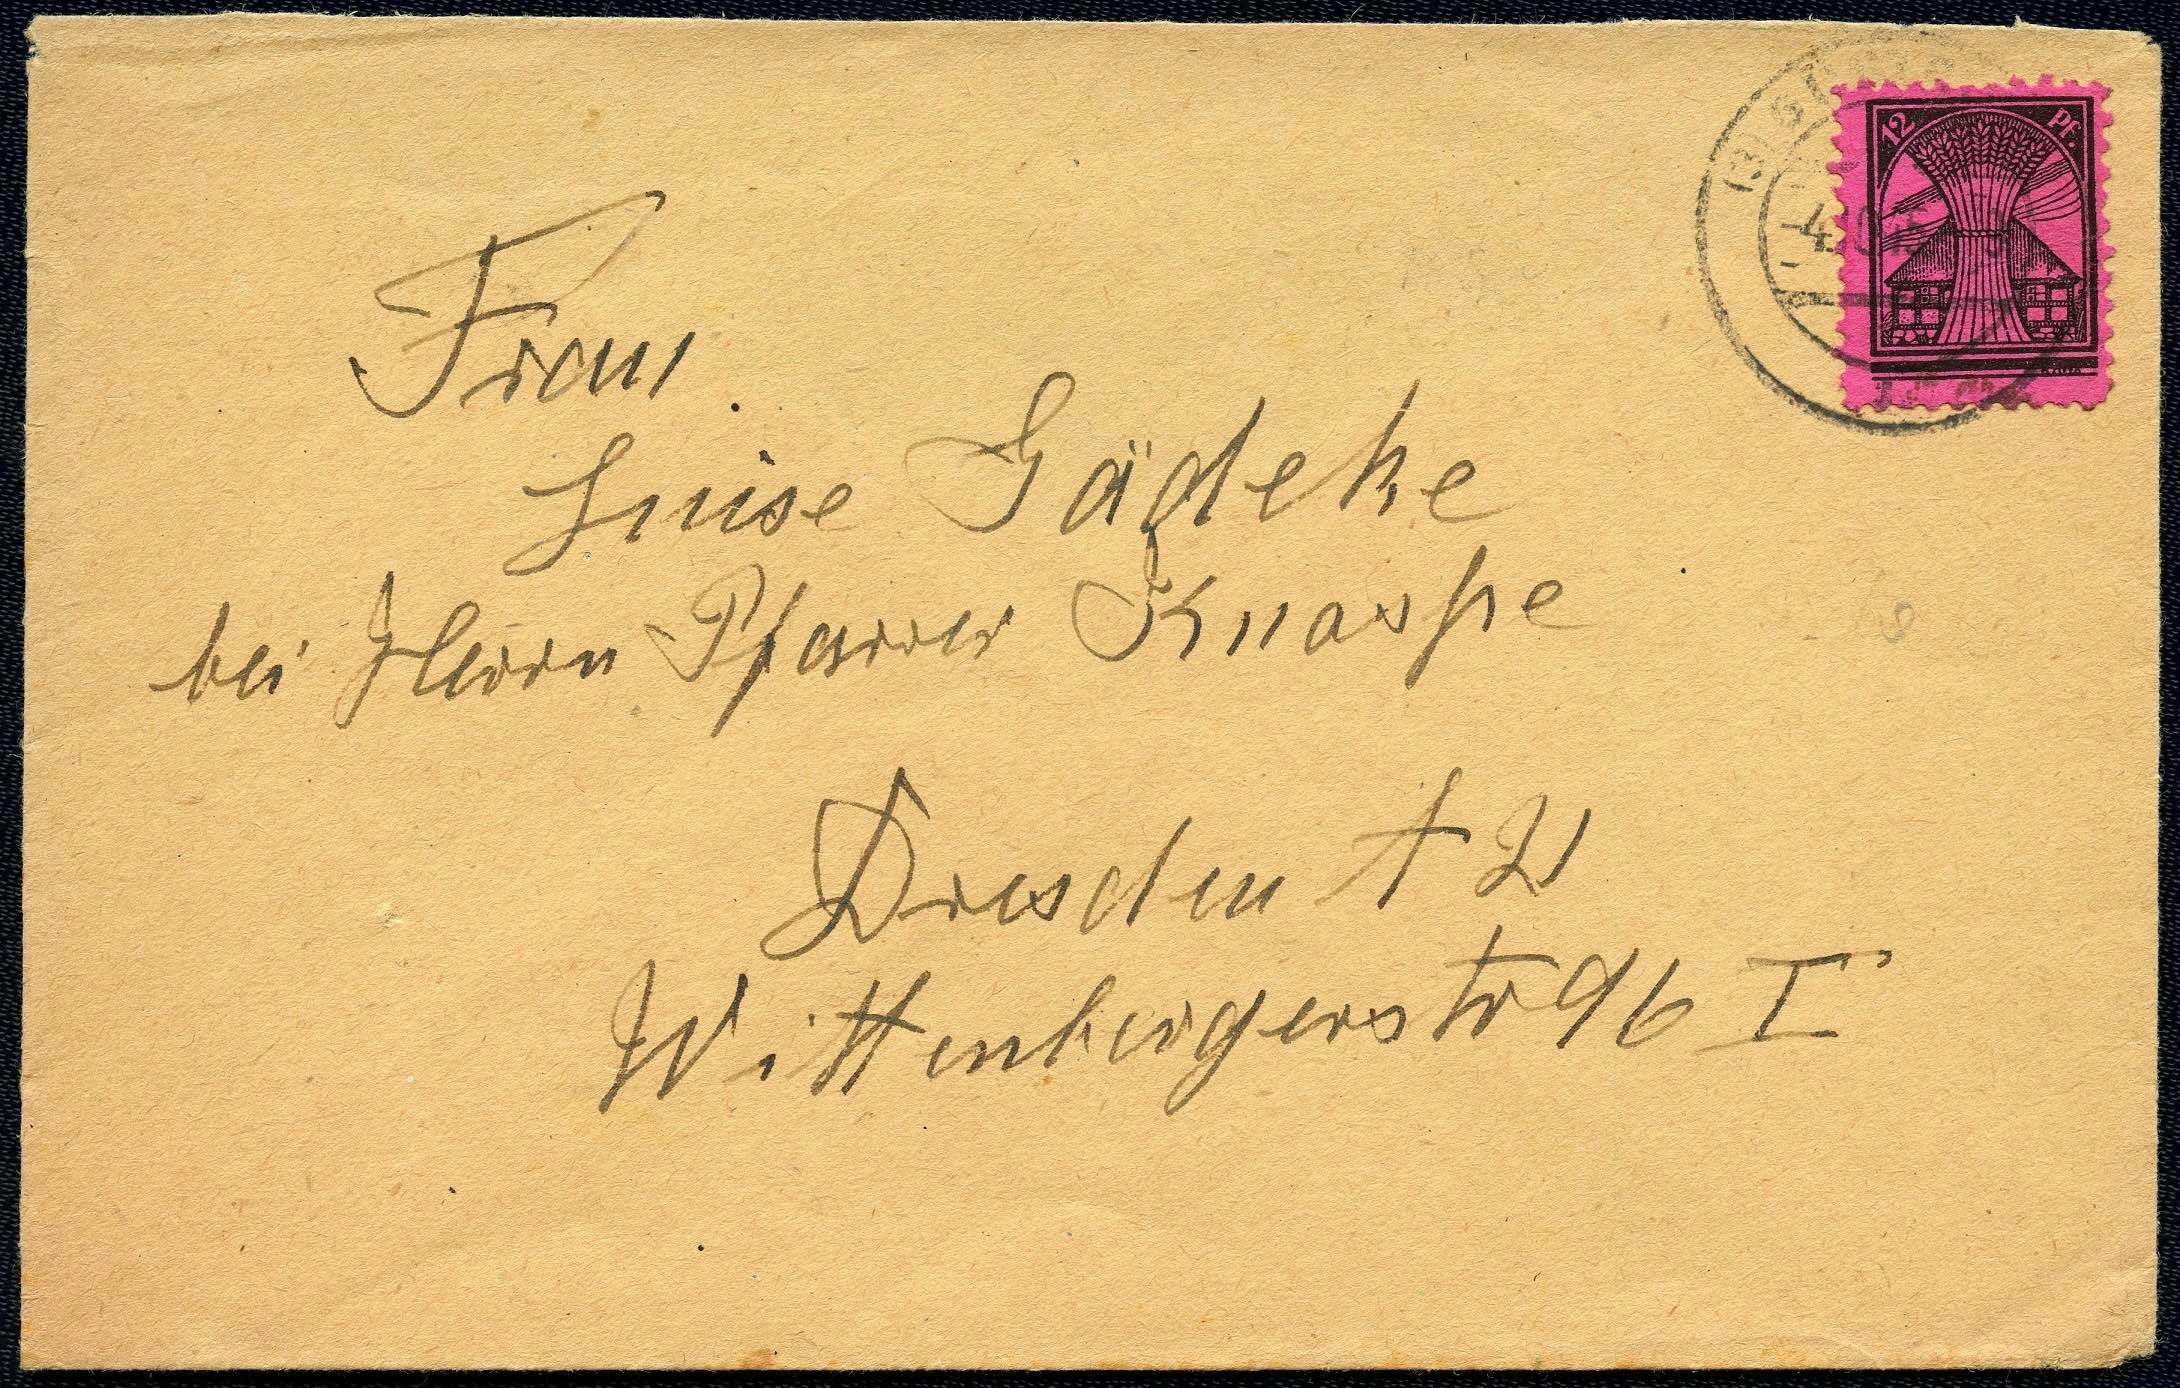 12 Pf.
Frau
Luise Gädeke
bei Herrn Pfarrer Knaspe
Dresden A 21
Wittenbergerstr 96 I